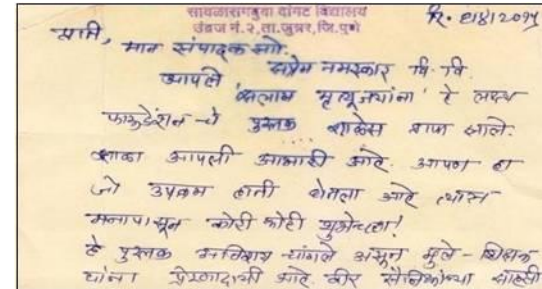 सावळारामबुवा दांगट विद्यालय
उंब्रज नं. २, ता. जुन्नर, जि. पुणे
दि. ८/४/२०१५
प्रति, मान संपादक सो.
सप्रेम नमस्कार वि. वि.
आपले 'सलाम मृत्यूंजयांना' हे लक्ष्य
फाऊंडेशन - चे पुस्तक शाळेस प्राप्त झाले.
शाळा आपली आभारी आहे. आपण हा
जो उपक्रम हाती घेतला आहे त्यास
मनापासून कोटी कोटी शुभेच्छा!
हे पुस्तक अतिशय चांगले असून मुले - शिक्षक
यांना प्रेरणादायी आहे. वीर सैनिकांच्या